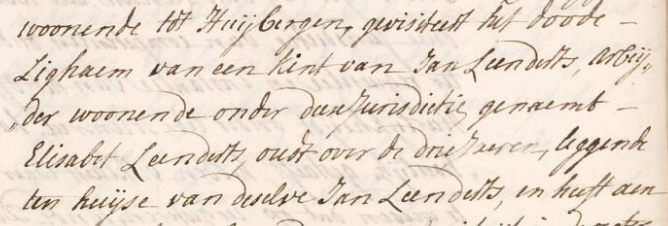 woonende tot Huijbergen, gevisiteert het doode -
Lighaem van een kint van Jan Leenderts, arbeij„
„der woonende onder dese Jurisdictie, genaemt -
Elisabet Leenderts, oudt over de drie Jaeren, leggende
ten huijse van deselve Jan Leenderts, en heeft aen